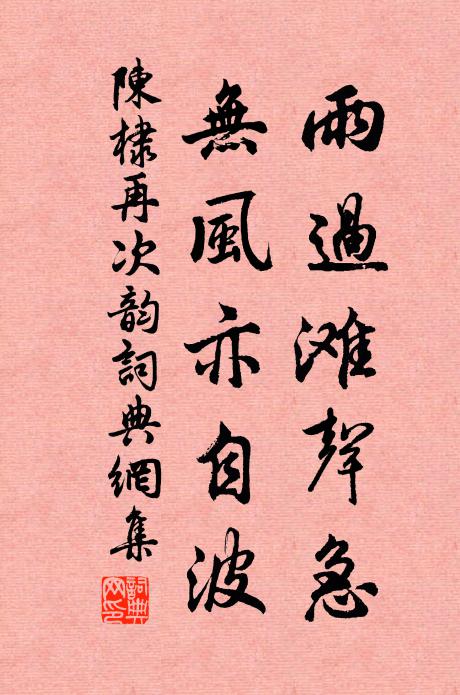 雨過滩聲急
無風亦自波
陳棣再次韵詞典網集
詞典網印